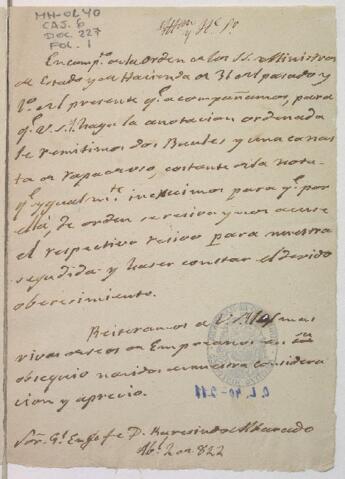 MH-OL 40
CAJ. 6
DOC. 227
FOL. 1
En cump.to de la orden de los SS. Ministros
de Estado y de Hacienda de 31 del pasado y
1.o del presente q.e acompañamos, para
q.e V.S.Y. haga la anotacion ordenada
le remitimos dos Baules y una canas
ta de rapaceso, costante de la nota
q.e ygualm.te incluimos para q.e por
ella, de orden se resiva y nos acuse
el respectivo resivo para nuestra
seguridad y haser constar el devido
obedesimiento.
Reiteramos a V.S. las mas
vivas deseos de emplearnos en su
obsequio nacidos de nuestra considera
cion y aprecio.
O.L. 40-211
Sor. G.l Enge fe D. Rudesindo Albarado
Ab.l 2 de 822